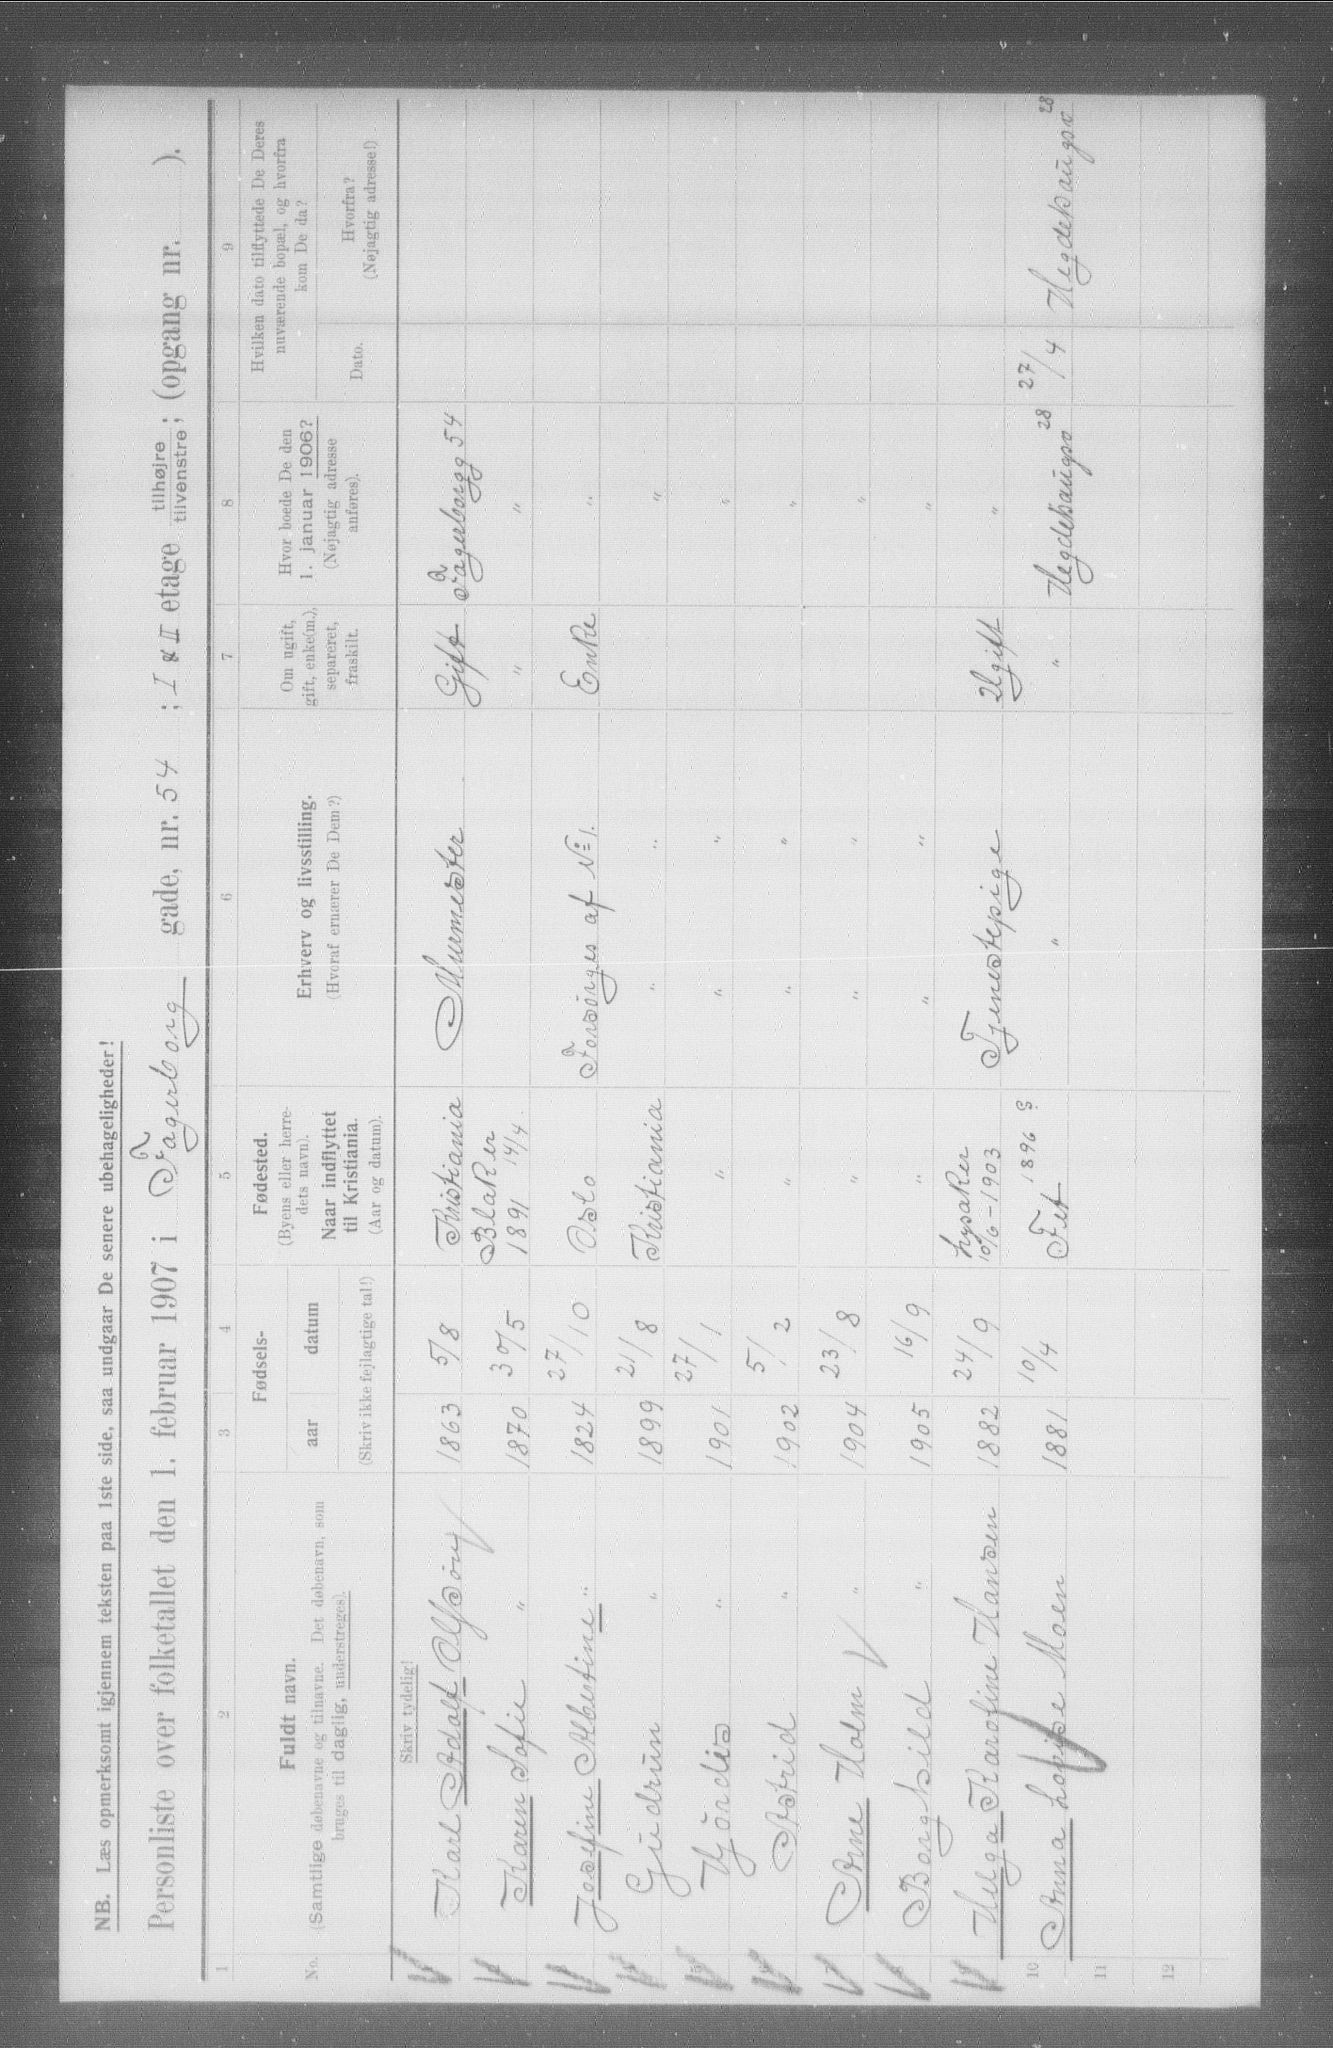 NB. Læs opmerksomt igjennem teksten paa 1ste side, saa undgaar De senere ubehageligheder!
Personliste over folketallet den 1. februar 1907 i Fagerborg gade, nr. 54 ; I & II etage tilhøjre tilvenstre ; (opgang nr. ).
1 2 3 4 5 6 7 8 9
No.
Fuldt navn.
(Samtlige døbenavne og tilnavne. Det døbenavn, som
bruges til daglig, understreges).
Fødsels-
aar datum
(Skriv ikke fejlagtige tal!)
Fødested.
(Byens eller herre-
dets navn).
Naar indflyttet
til Kristiania.
(Aar og datum).
Erhverv og livsstilling.
(Hvoraf ernærer De Dem?)
Om ugift,
gift, enke(m.),
separeret,
fraskilt.
Hvor boede De den
1. januar 1906?
(Nøjagtig adresse
anføres).
Hvilken dato tilflyttede De Deres
nuværende bopæl, og hvorfra
kom De da?
Dato.
Hvorfra?
(Nøjagtig adresse!)
Skriv tydelig!
Karl Adolf 1863 5/8 Kristiania Murmester Gift Fagerborgg 54
Karen Sofie " 1870 30/5 Blaker 1891 14/4 " "
Josefine Albertine " 1824 27/10 Oslo Forsörges af No 1. Enke "
Gudrun " 1899 21/8 Kristiania " " "
Hjördis " 1901 27/1 " " " "
Astrid " 1902 5/2 " " " "
Arne Holm " 1904 23/8 " " " "
Borghild " 1905 16/9 " " " "
Helga Karofine Hansen 1882 24/9 Lysaker 10/6-1903 Tjenestepige Ugift "
10 Anna Lovise Moen 1881 10/4 Fet 1896 ? " " Hegdehaugsv 28 27/4 Hegdehaugsv 28
11
12